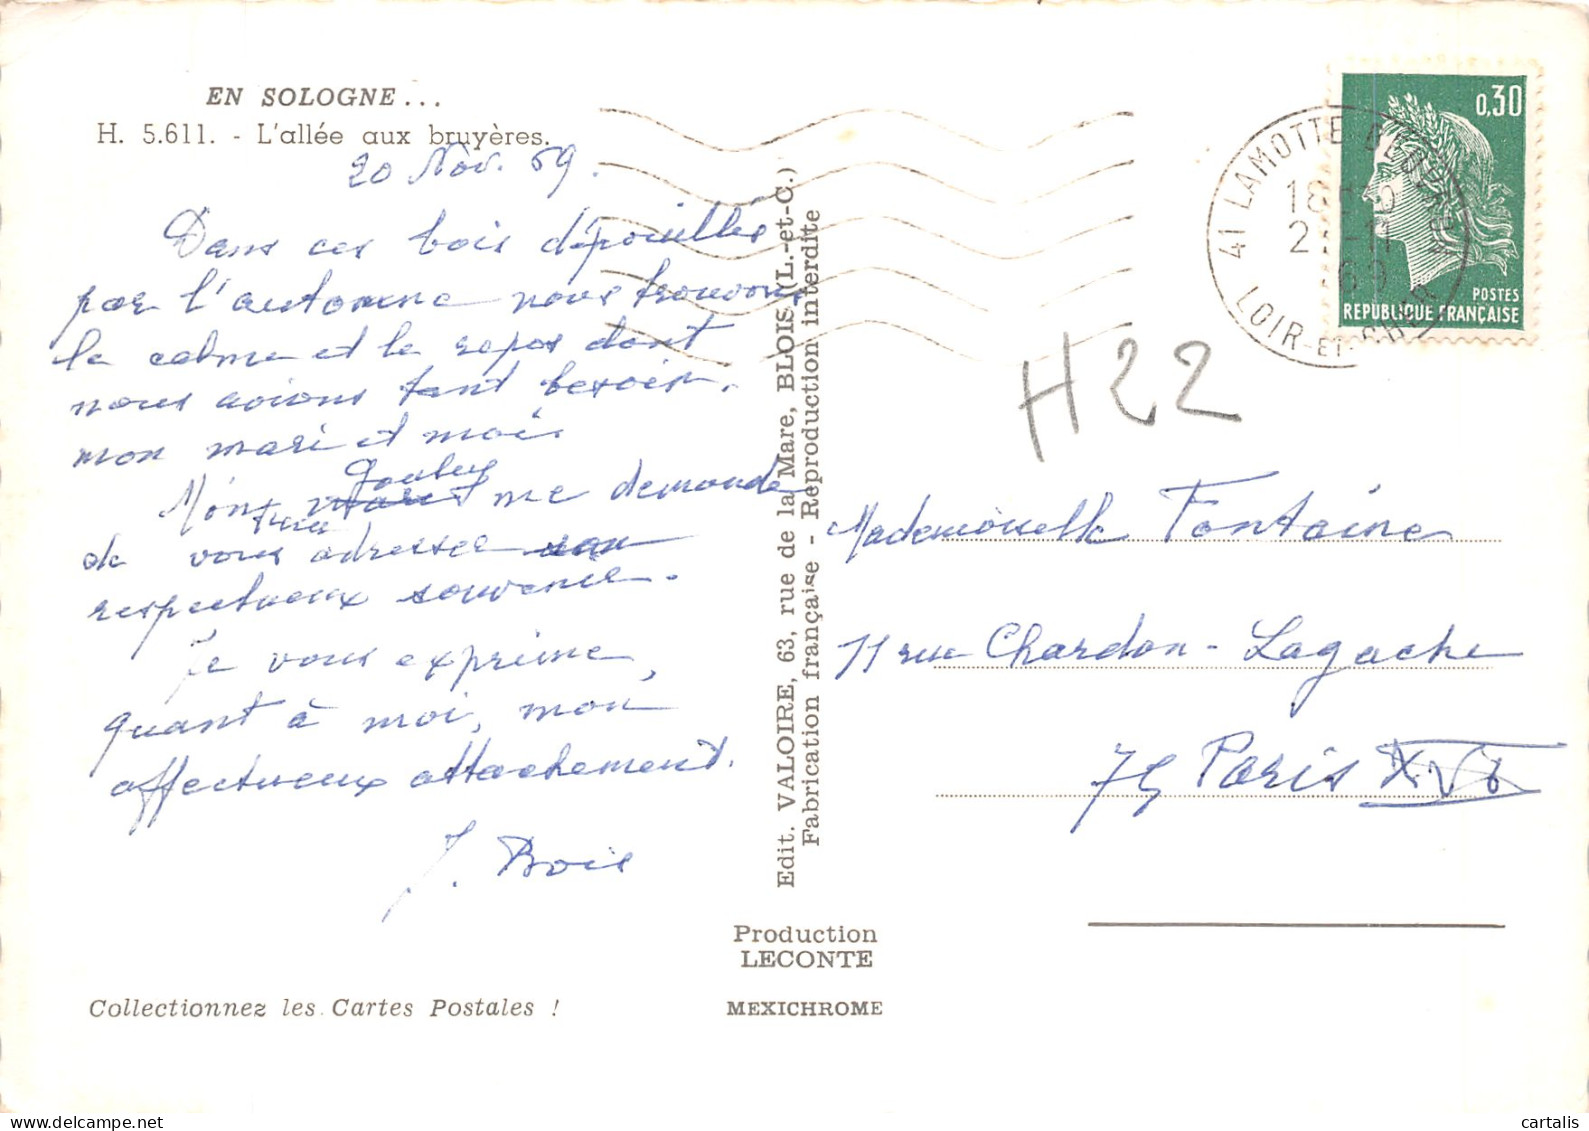 EN SOLOGNE...
H. 5.611. - L'allée aux bruyères.
20 Nov. 69.
Dans ces bois dépouillés
par l'automne nous trouvons
le calme et le repos dont
nous avions tant besoin,
mon mari et moi.
Mon me demande
de vous adresser
respectueux souvenir.
Je vous exprime,
quant à moi, mon
affectueux attachement.
J. Bois
Collectionnez les Cartes Postales !
Edit. VALOIRE, 63, rue de la Mare, BLOIS (L.-et-C.)
Fabrication française - Reproduction interdite
Production
LECONTE
MEXICHROME
41 LAMOTTE BEUVRON
LOIR-ET-CHER
0,30
POSTES
REPUBLIQUE FRANÇAISE
H22
Mademoiselle Fontaine
11 rue Chardon-Lagache
75 Paris XVI
cartalis